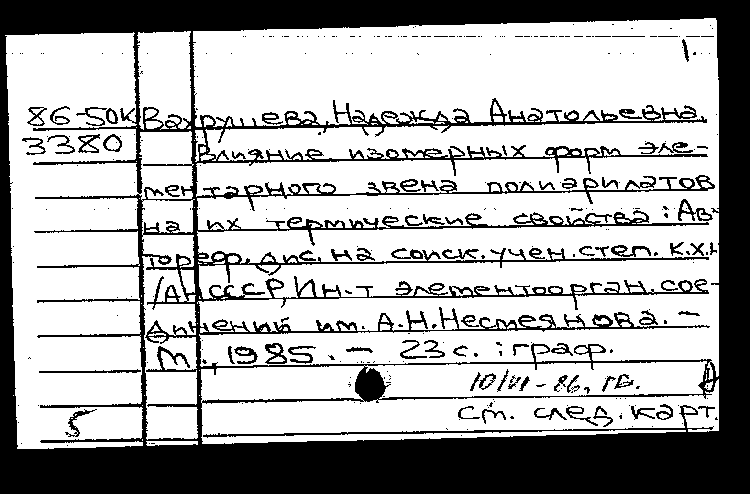 1.
86-50К Вахрушева, Надежда Анатольевна.
3380 Влияние изомерных форм эле-
ментарного звена полиарилатов
на их термические свойства: Ав-
тореф. дис. на соиск. учен. степ. к.х.н
/АН СССР, Ин-т элементоорган. сое-
динений им. А.Н.Несмеянова. –
М., 1985. – 23 с. : граф.
10/VI-86.
5 см. след. карт.